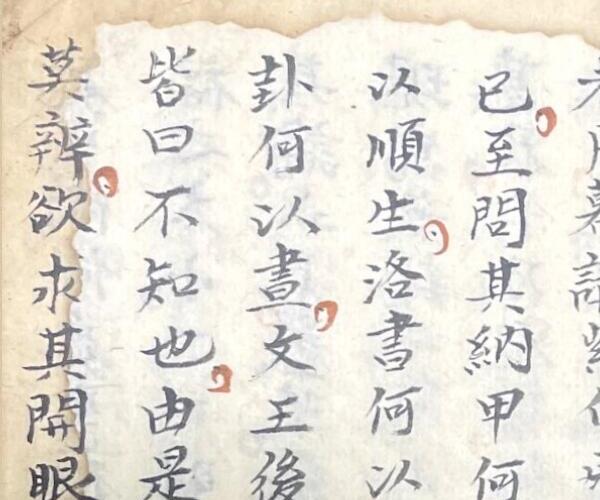 已至問其納甲何
以順生洛書何以
卦何以畫文王後
皆曰不知也由是
莫辨欲求其開眼